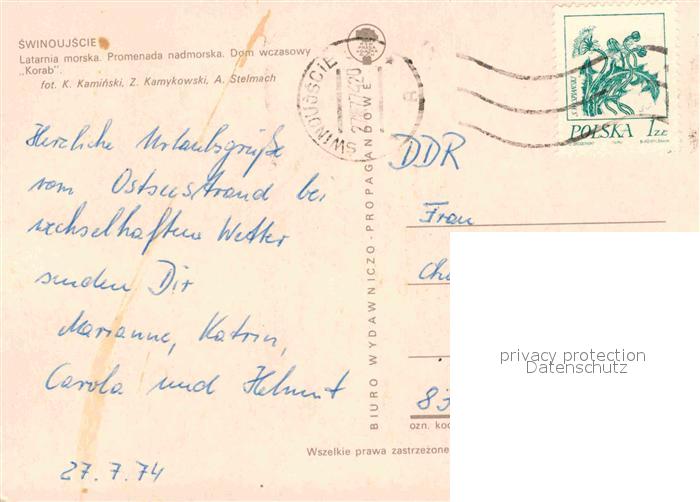 ŚWINOUJŚCIE
Latarnia morska. Promenada nadmorska. Dom wczasowy
„Korab".
fot. K. Kamiński, Z. Kamykowski, A. Stelmach
Herzliche Urlaubsgrüße
vom Ostseestrand bei
wechselhaftem Wetter
senden Dir
Marianne, Katrin,
Carola und Helmut
27.7.74
BIURO WYDAWNICZO-PROPAGANDOWE
ŚWINOUJŚCIE
POLSKA 1ZŁ
DDR
Frau
83
ozn. kod
Wszelkie prawa zastrzeżone
privacy protection
Datenschutz